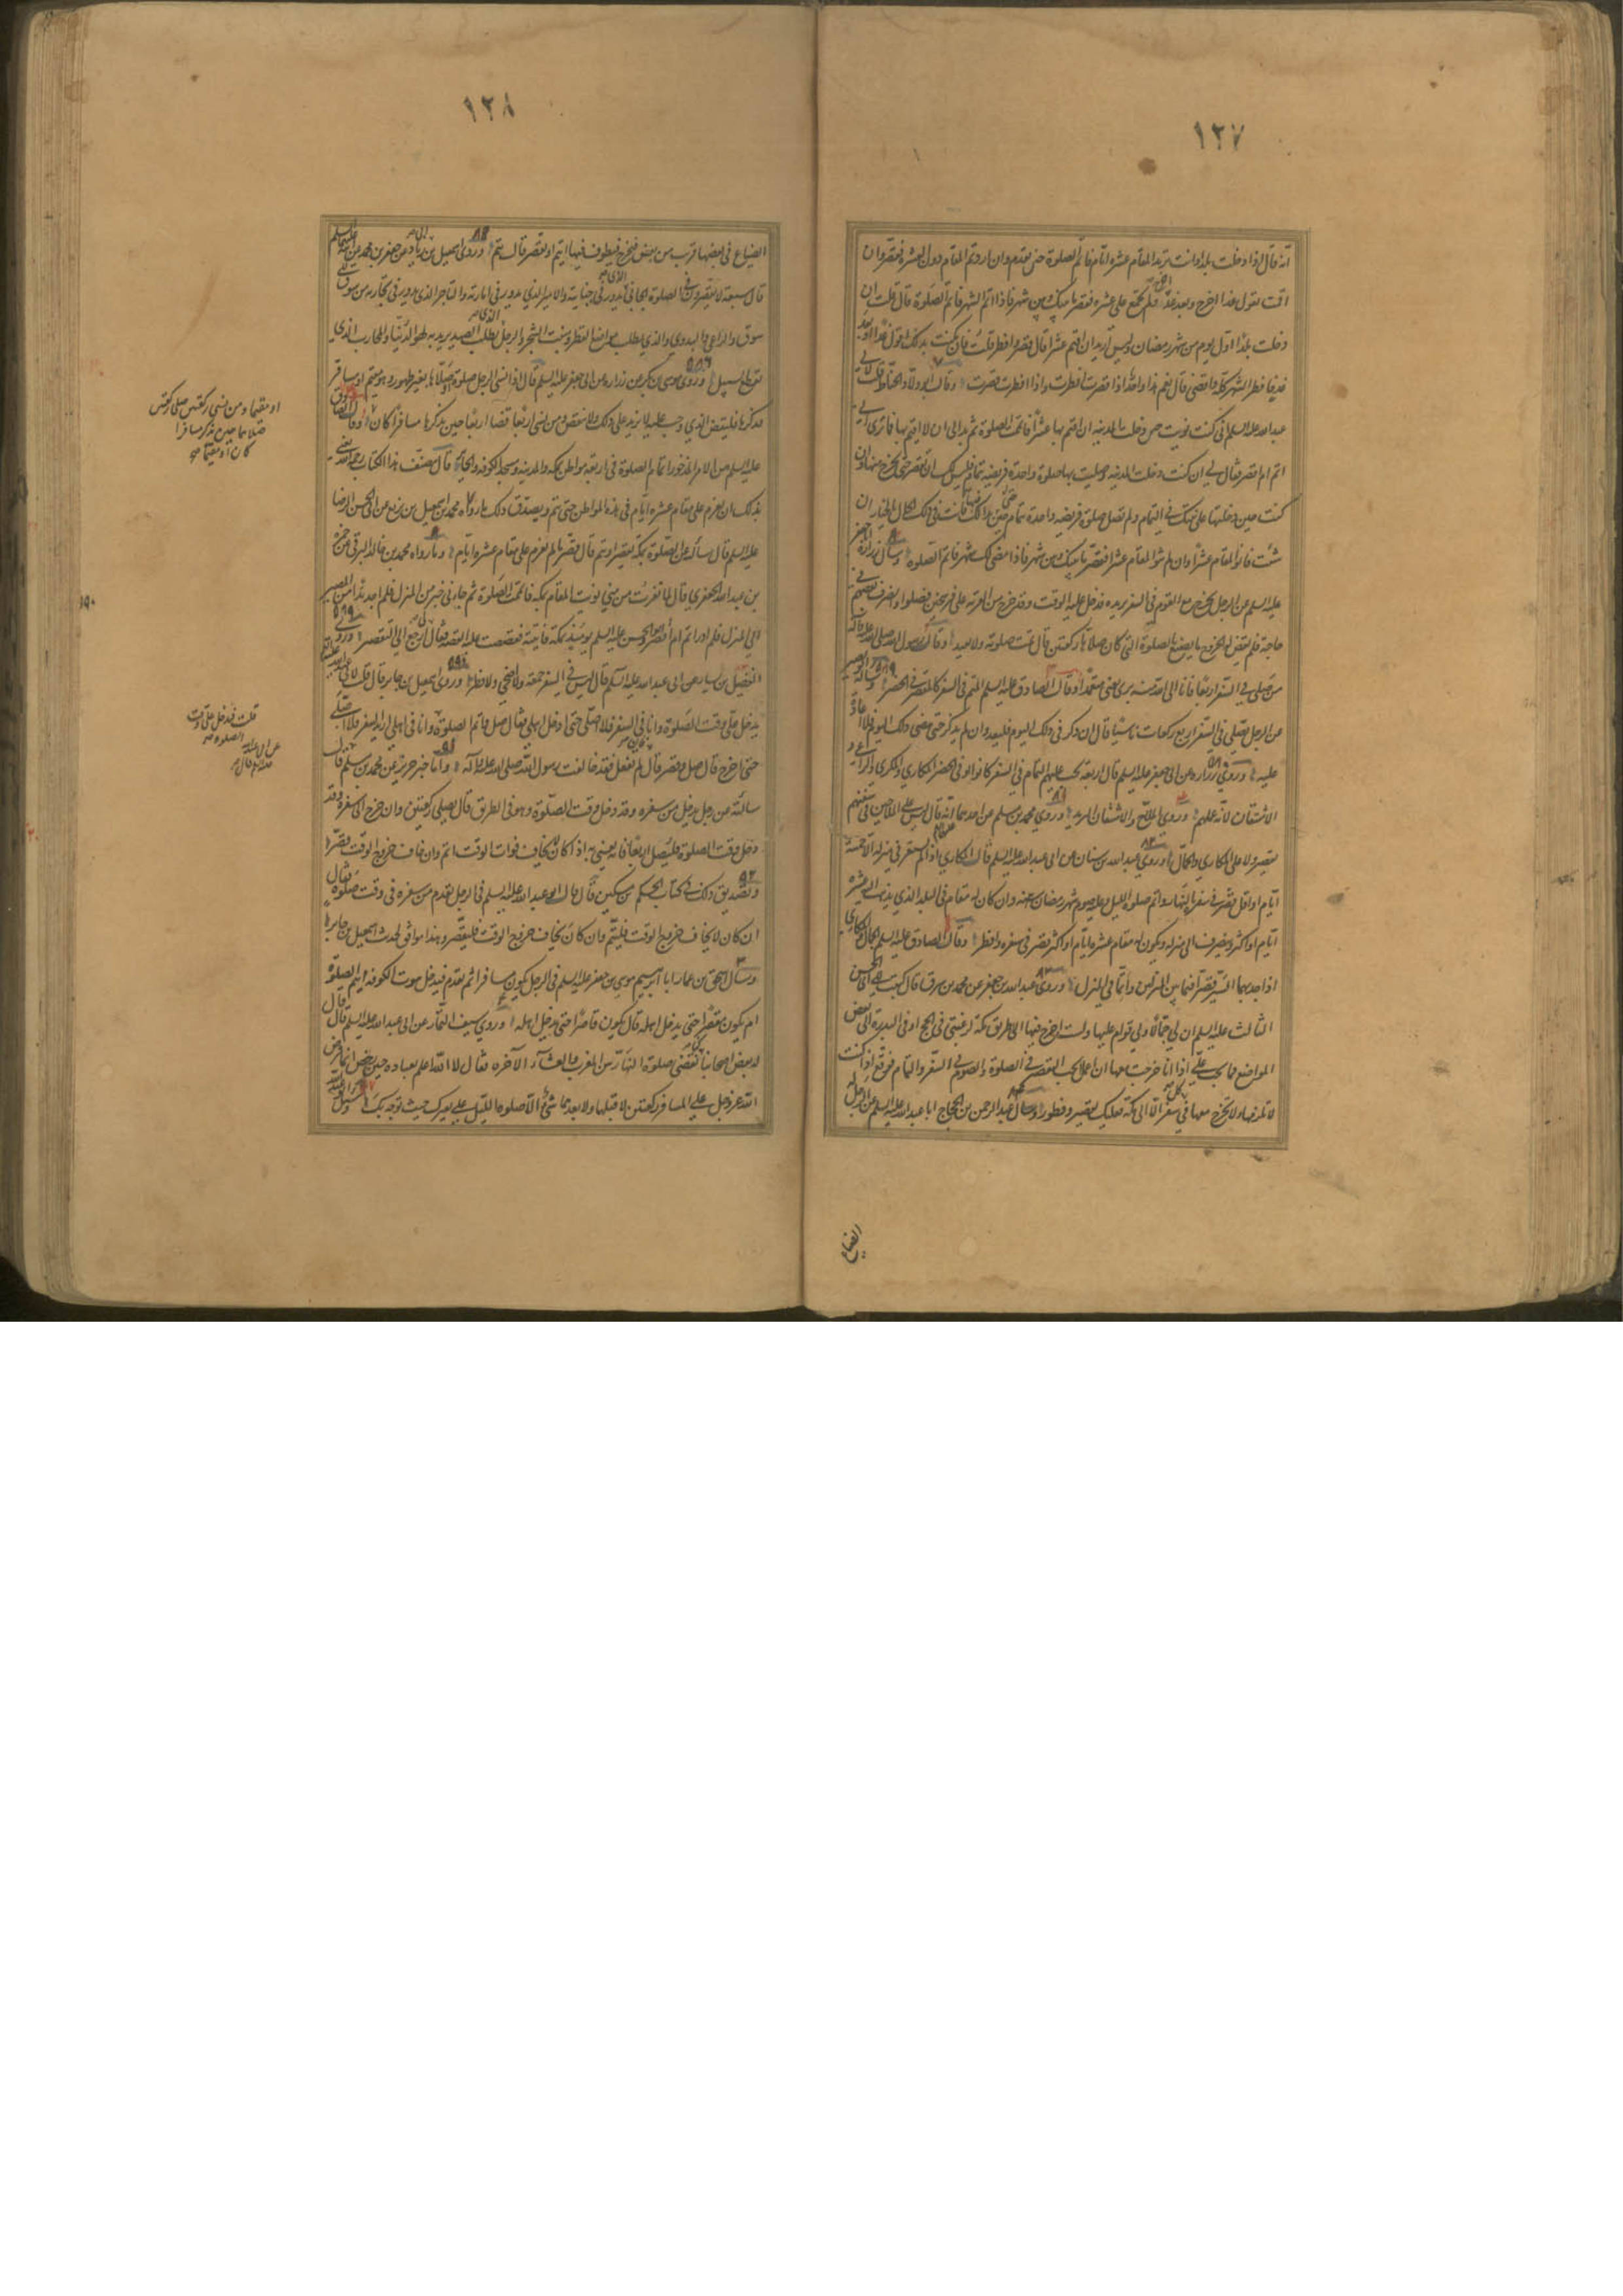 ١٢٧
انه قال اذا دخلت بلدا وانت تريد المقام عشرة ايام فاتم الصلوة حين تقدم وان اردت المقام دون العشرة فقصر وان
اقمت تقول غدا اخرج وبعد غد ولم تجمع على عشرة فقصر ما بينك وبين شهر فاذا اتم الشهر فاتم الصلوة قال قلت ان
دخلت بلدا اول يوم من شهر رمضان ولست اريد ان اقيم عشرا قال قصر وافطر قلت فان مكثت كذلك اقول غدا او بعد
غد فافطر الشهر كله واقصر قال نعم هذا واحد اذا قصرت افطرت واذا افطرت قصرت وقال ابو ولاد الحناط قلت لابي
عبد الله عليه السلم اني كنت نويت حين دخلت المدينه ان اقيم بها عشرا فاتممت الصلوة ثم بدا لي ان لا اقيم بها فما ترى لي
اتم ام اقصر فقال لي ان كنت دخلت المدينه وصليت بها صلوة واحدة فريضه بتمام فليس لك ان تقصر حتى تخرج منها وان
كنت حين دخلتها على نيتك في التمام ولم تصل صلوة فريضه واحدة بتمام حتى بدا لك فانت في ذلك الحال بالخيار ان
شئت فانو المقام عشرا واتم وان لم تنو المقام عشرا فقصر ما بينك وبين شهر فاذا مضى لك شهر فاتم الصلوة وسأل زرارة ابا جعفر
عليه السلم عن الرجل يخرج مع القوم في السفر يريده فدخل عليه الوقت وقد خرج من القرية على فرسخين فصلوا وانصرف بعضهم في
حاجة فلم يقض له الخروج ما يصنع بالصلوة التي كان صلاها ركعتين قال تمت صلوته ولا يعيد وقال رسول الله صلى الله عليه وآله
من صلى في السفر اربعا فانا الى الله منه برئ يعني متعمدا وقال الصادق عليه السلم المتم في السفر كالمقصر في الحضر وسأله ابو بصير
عن الرجل يصلي في السفر اربع ركعات ناسيا قال ان ذكر في ذلك اليوم فليعد وان لم يذكر حتى مضى ذلك اليوم فلا اعادة
عليه وروى زرارة عن ابي جعفر عليه السلم قال اربعة يجب عليهم التمام في السفر كانوا او في الحضر المكاري والكري والراعي و
الاشتقان لانه عملهم وروي الملاح والاشتقان البريد وروى محمد بن مسلم عن احدهما انه قال ليس على الملاحين في سفينتهم
تقصير ولا على المكاري والجمال وروى عبد الله بن سنان عن ابي عبد الله عليه السلم قال المكاري اذا لم يستقر في منزله الا خمسة
ايام او اقل قصر في سفره بالنهار واتم صلوة الليل وعليه صوم شهر رمضان وان كان له مقام في البلد الذي يذهب اليه عشره
ايام او اكثر وينصرف الى منزله ويكون له مقام عشرة ايام او اكثر قصر في سفره وافطر وقال الصادق عليه السلم الجمال والمكاري
اذا جد بهما السير قصرا فيما بين المنزلين واتما في المنزل وروى عبد الله بن جعفر عن محمد بن شرف قال كتبت الى ابي الحسن
الثالث عليه السلم ان لي جمالا ولي قوام عليها ولست اخرج فيها الا في طريق مكة لرغبتي في الحج او في الندرة الى بعض
المواضع فما يجب علي اذا انا خرجت معها ان اعمل ايجب التقصير في الصلوة والصوم في السفر او التمام فوقع اذا كنت
لا تلزمها ولا تخرج معها في كل سفر الا الى مكة فعليك تقصير وفطور وسأل عبد الرحمن بن الحجاج ابا عبد الله عليه السلم عن الرجل له
الضياع
١٢٨
الضياع في بعضها قرب من بعض فيخرج فيطوف فيها ايتم او يقصر قال يتم وروى اسمعيل بن ابي زياد عن جعفر بن محمد عن ابيه عليهما السلم
قال سبعة لا يقصرون في الصلوة الجابي الذي يدور في جبايته والامير الذي يدور في امارته والتاجر الذي يدور في تجارته من سوق الى
سوق والراعي والبدوي الذي يطلب مواضع القطر ومنبت الشجر والرجل الذي يطلب الصيد يريد به لهو الدنيا والمحارب الذي
يقطع السبيل وروى موسى بن بكر عن زرارة عن ابي جعفر عليه السلم قال اذا نسي الرجل صلوة او صلاها بغير طهور وهو مقيم او مسافر
فذكرها فليقض الذي وجب عليه لا يزيد على ذلك ولا ينقص ومن نسي اربعا قضا اربعا حين يذكرها مسافرا كان او وقال الصادق
عليه السلم من الامر المذخور اتمام الصلوة في اربعة مواطن بمكه والمدينه ومسجد الكوفه والحائر قال مصنف هذا الكتاب رحمه الله يعني
بذلك ان يعزم على مقام عشره ايام في هذه المواطن حتى يتم وتصديق ذلك ما رواه محمد بن اسمعيل بن بزيع عن ابي الحسن الرضا
عليه السلم قال سألته عن الصلوة بمكه يقصر او يتم قال قصر ما لم تعزم على مقام عشره ايام وما رواه محمد بن خالد البرقي عن حمزه
بن عبد الله الجعفري قال لما نفرت من منى نويت المقام بمكه فاتممت الصلوة ثم جاءني خبر من المنزل فلم اجد بدا من المصير
الى المنزل فلم ادر اتم ام اقصر وابو الحسن عليه السلم يومئذ بمكه فاتيته فقصصت عليه القصه فقال لي ارجع الى التقصير وروى
الفضيل بن يسار عن ابي عبد الله عليه السلم قال ليس في السفر جمعة ولا اضحى ولا فطر وروى اسمعيل بن جابر قال قلت لابي عبد الله عليه السلم
يدخل علي وقت الصلوة وانا في السفر فلا اصلي حتى ادخل اهلي فقال صل واتم الصلوة وانا في اهلي اريد السفر فلا اصلي
حتى اخرج قال صل وقصر فان لم تفعل فقد خالفت رسول الله صلى الله عليه وآله واما خبر حريز عن محمد بن مسلم قال
سألته عن رجل يدخل من سفره وقد دخل وقت الصلوة وهو في الطريق قال يصلي ركعتين وان خرج الى سفره وقد
دخل وقت الصلوة فليصل اربعا فانه يعني به اذا كان لا يخاف فوات الوقت اتم وان خاف خروج الوقت قصر
وتصديق ذلك في كتاب الحكم بن مسكين قال قال ابو عبد الله عليه السلم في الرجل يقدم من سفره في وقت صلوة فقال
ان كان لا يخاف خروج الوقت فليتم وان كان يخاف خروج الوقت فليقصر وهذا موافق لحديث اسمعيل بن جابر
وسأل اسحق بن عمار ابا ابراهيم موسى بن جعفر عليه السلم في الرجل يكون مسافرا ثم يقدم فيدخل بيوت الكوفه ايتم الصلوة
ام يكون مقصرا حتى يدخل اهله قال يكون قاصرا حتى يدخل اهله وروى سيف التمار عن ابي عبد الله عليه السلم قال
له بعض اصحابنا كنا نقضي صلوة النهار بين المغرب والعشاء الآخره فقال لا الله اعلم بعباده حين رخص لهم انما فرض
الله عز وجل على المسافر ركعتين لا قبلهما ولا بعدهما شئ الا صلوه الليل على بعيرك حيث توجه بك
او مقيما ومن نسي ركعتين صلى ركعتين
فصلاهما حين يذكر مسافرا
كان او مقيما صح
قلت فدخل علي وقت
الصلوة